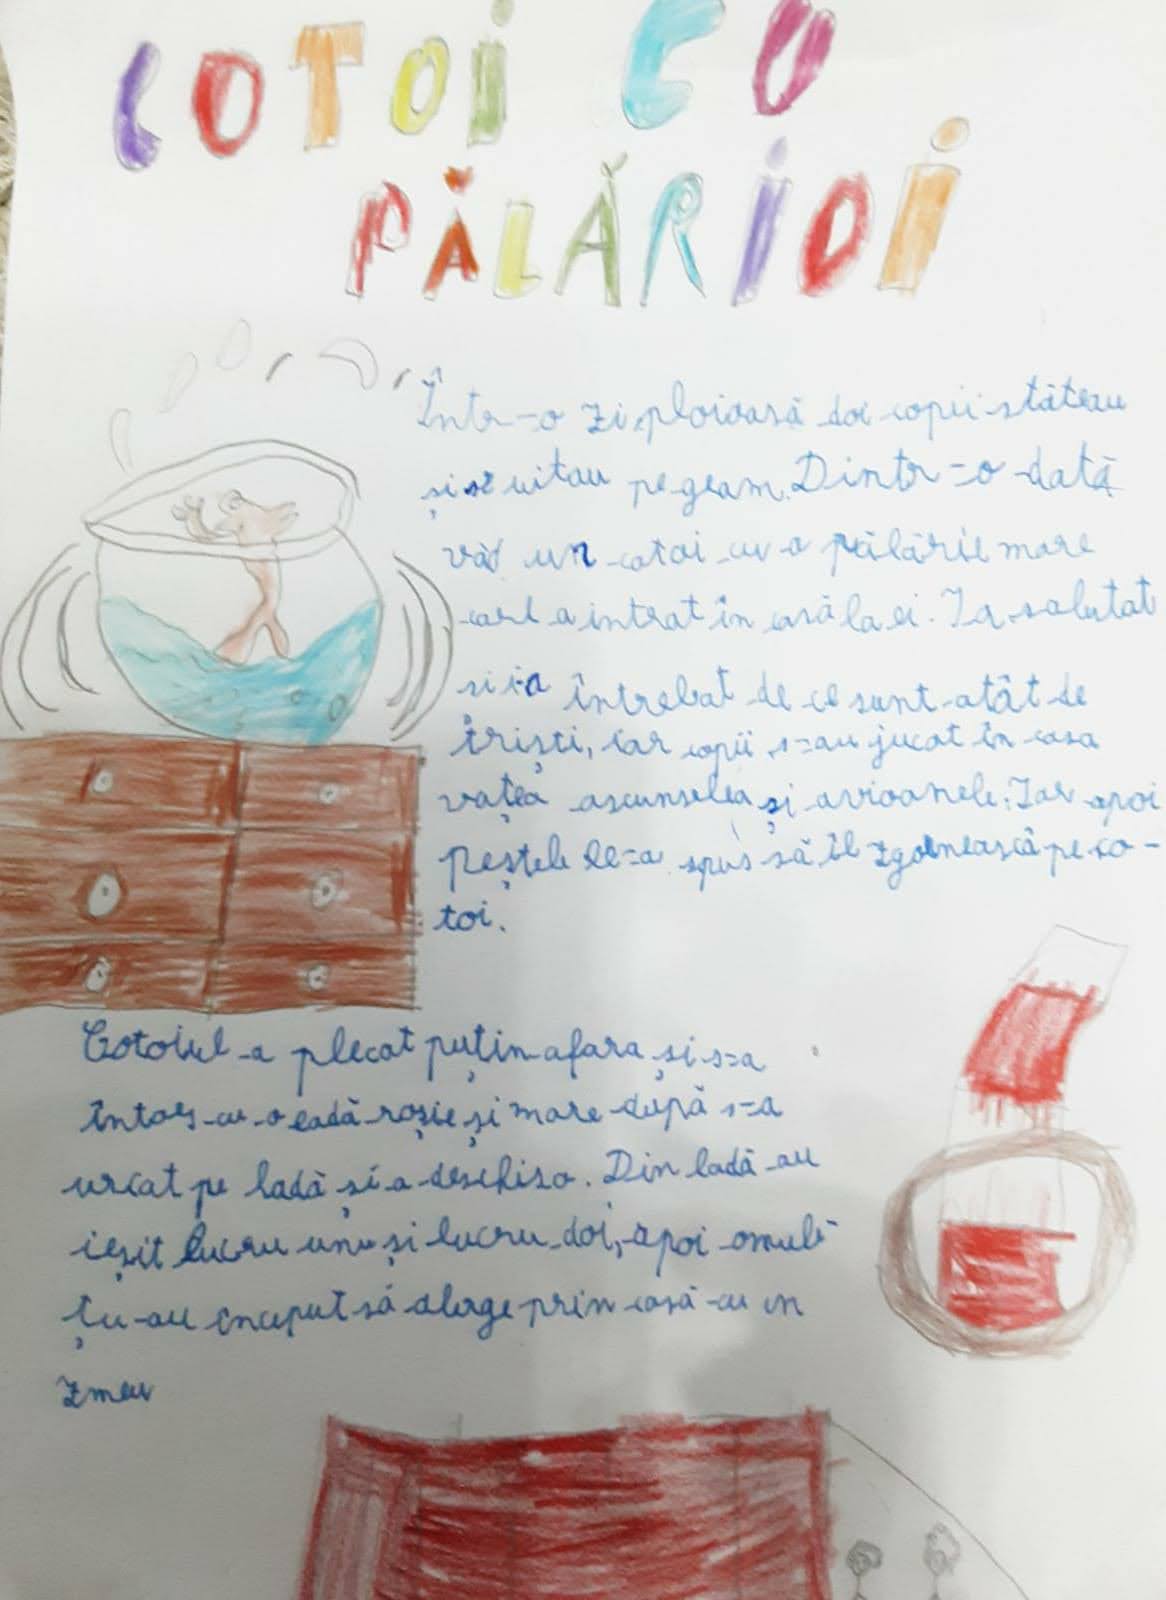 COTOI CU
PĂLĂRIOI
Într-o zi ploioasă doi copii stăteau
și se uitau pe geam. Dintr-o dată
văd un cotoi cu o pălărie mare
care a intrat în casă la ei. Ia salutat
si i-a întrebat de ce sunt atât de
triști, iar copii s-au jucat în casa
vațea ascunselea și avioanele. Iar apoi
peștele le-a spus să îl zgonească pe co-
toi.
Cotoiul a plecat puțin afara și s-a
întors cu o ladă roșie și mare după s-a
urcat pe ladă și a deschiso. Din ladă au
ieșit lucru unu și lucru doi, apoi omule
țu au început să alerge prin casă cu un
zmeu